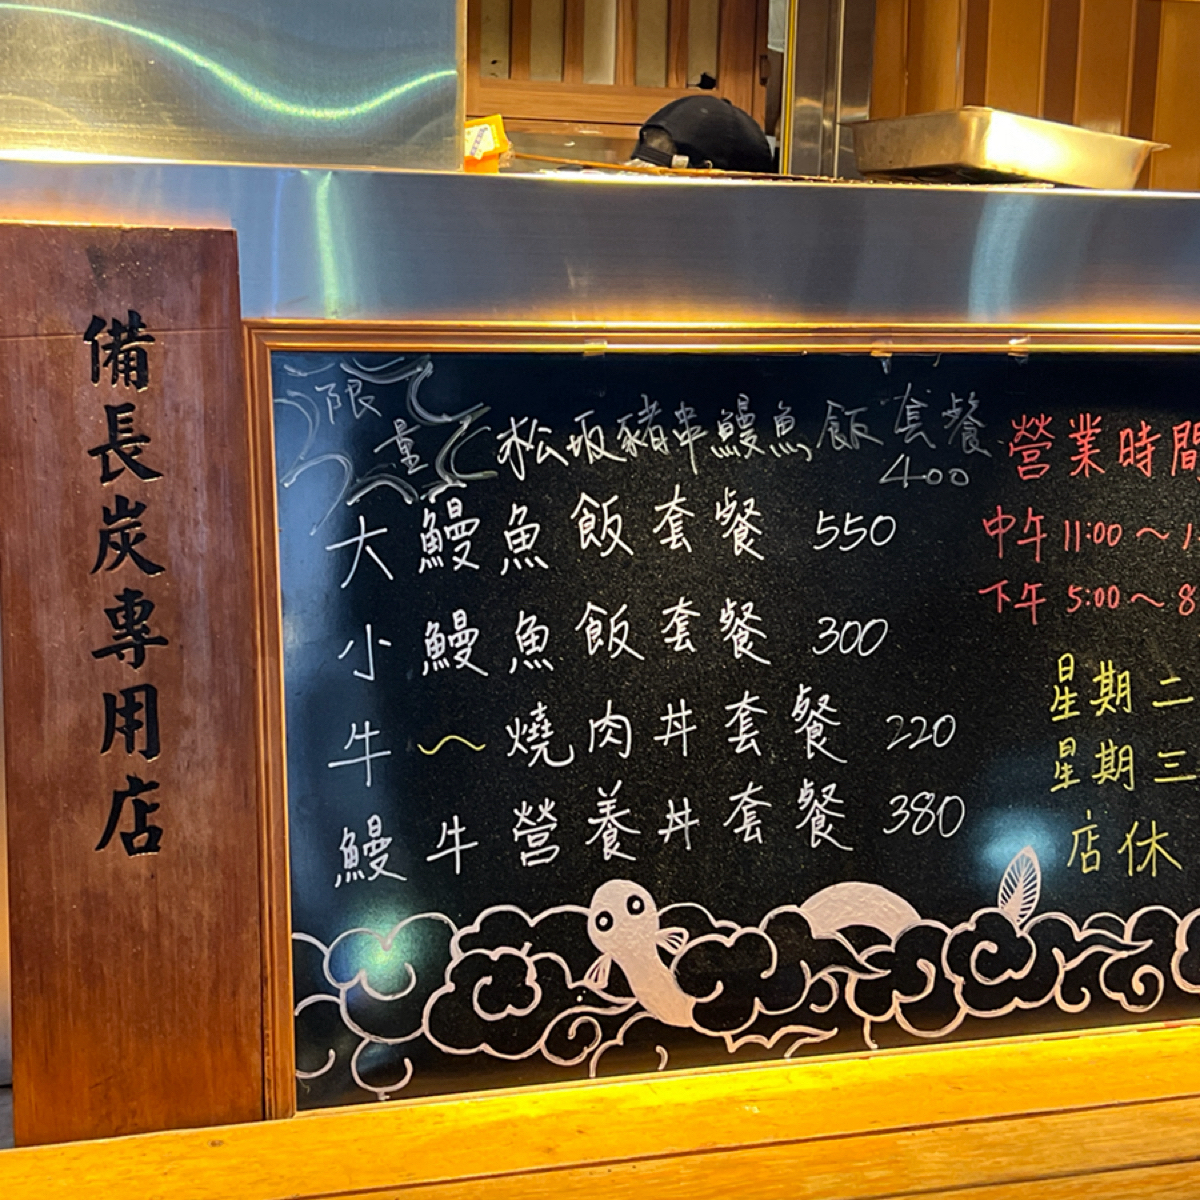 備長炭專用店
限量
松坂豬串鰻魚飯套餐
400
大鰻魚飯套餐 550
小鰻魚飯套餐 300
牛~燒肉丼套餐 220
鰻牛營養丼套餐 380
營業時間
中午 11:00~1
下午 5:00~8
星期二
星期三
店休